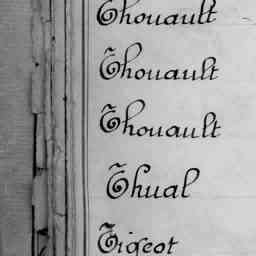 Thouault
Thouault
Thouault
Thual
Tigeot